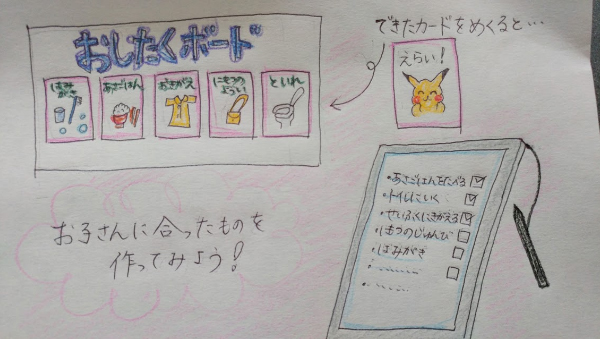 おしたくボード
はみがき
あさごはん
おきがえ
にもつのようい
といれ
できたカードをめくると…
えらい!
・あさごはんをたべる
・トイレにいく
・せいふくにきがえる
・にもつのじゅんび
・はみがき
お子さんに合ったものを
作ってみよう!